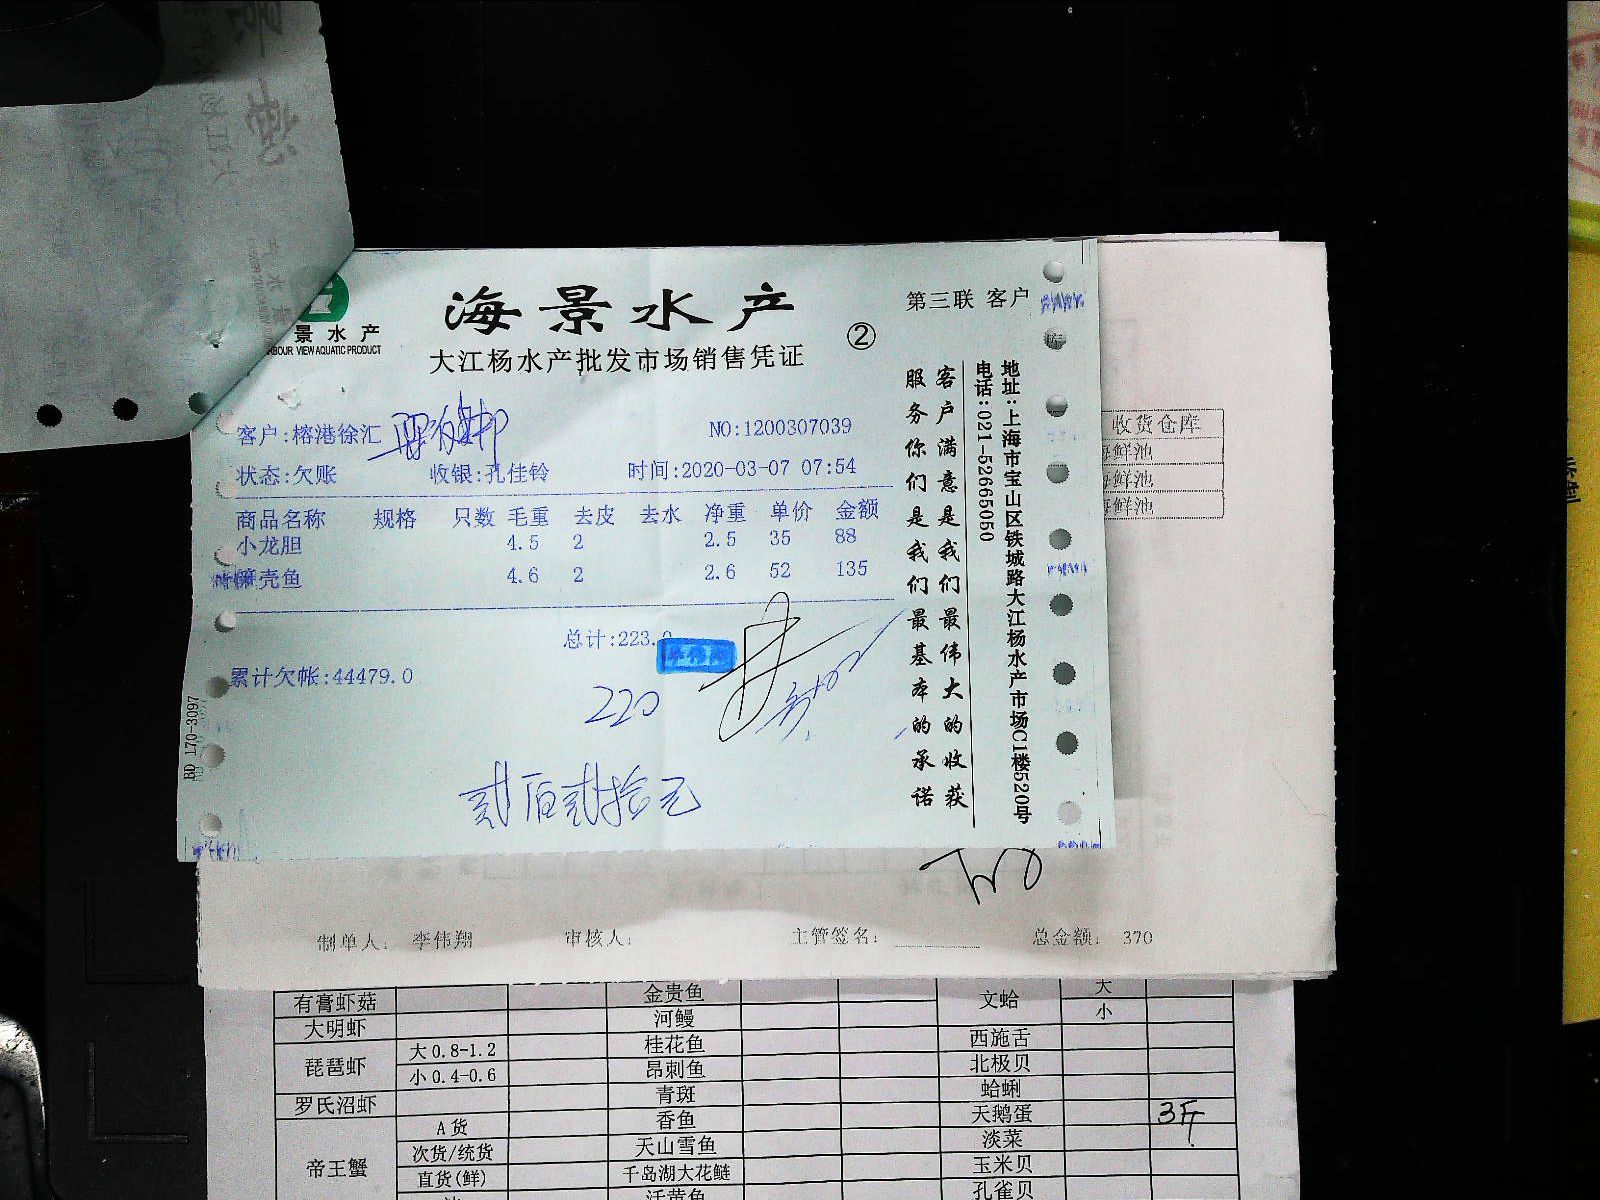 海景水产
大江杨水产批发市场销售凭证
②
第三联 客户
景水产
RBOUR VIEW AQUATIC PRODUCT
客户:榕港徐汇
NO:1200307039
状态:欠账 收银:孔佳铃 时间:2020-03-07 07:54
商品名称 规格 只数 毛重 去皮 去水 净重 单价 金额
小龙胆 4.5 2 2.5 35 88
笋壳鱼 4.6 2 2.6 52 135
总计:223.0
累计欠帐:44479.0
220
贰佰贰拾元
客户满意是我们最伟大的收获
服务你们是我们最基本的承诺
地址:上海市宝山区铁城路大江杨水产市场C1楼520号
电话:021-52665050
BD 170-3097
收货仓库
海鲜池
海鲜池
海鲜池
制单人: 李伟翔 审核人: 主管签名: 总金额: 370
有膏虾菇 金贵鱼 文蛤 大
大明虾 河鳗 小
琵琶虾 大0.8-1.2 桂花鱼 西施舌
小0.4-0.6 昂刺鱼 北极贝
罗氏沼虾 青斑 蛤蜊
帝王蟹 A货 香鱼 天鹅蛋 3斤
次货/统货 天山雪鱼 淡菜
直货(鲜) 千岛湖大花鲢 玉米贝
活黄鱼 孔雀贝